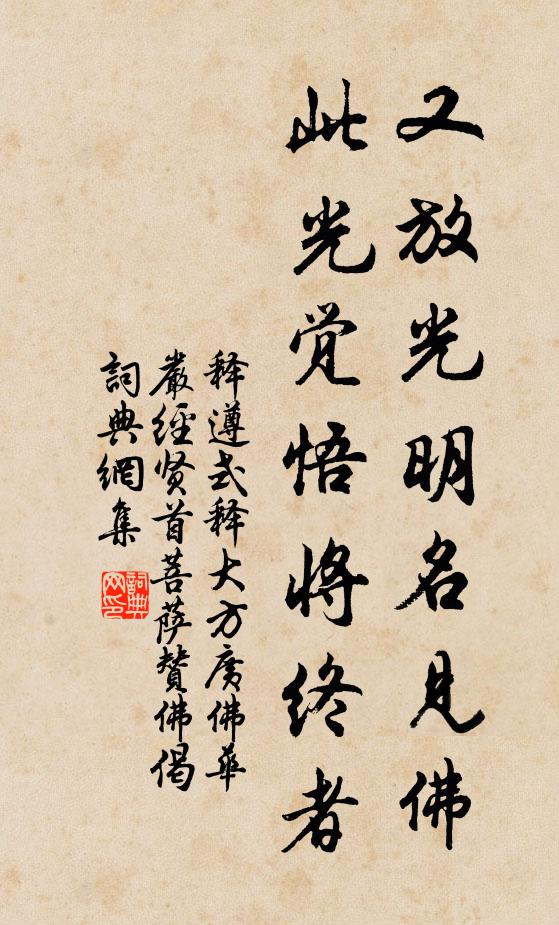 又放光明名見佛
此光覺悟将终者
释遵式释大方廣佛華
嚴經贤首菩萨赞佛偈
詞典網集
詞典网印